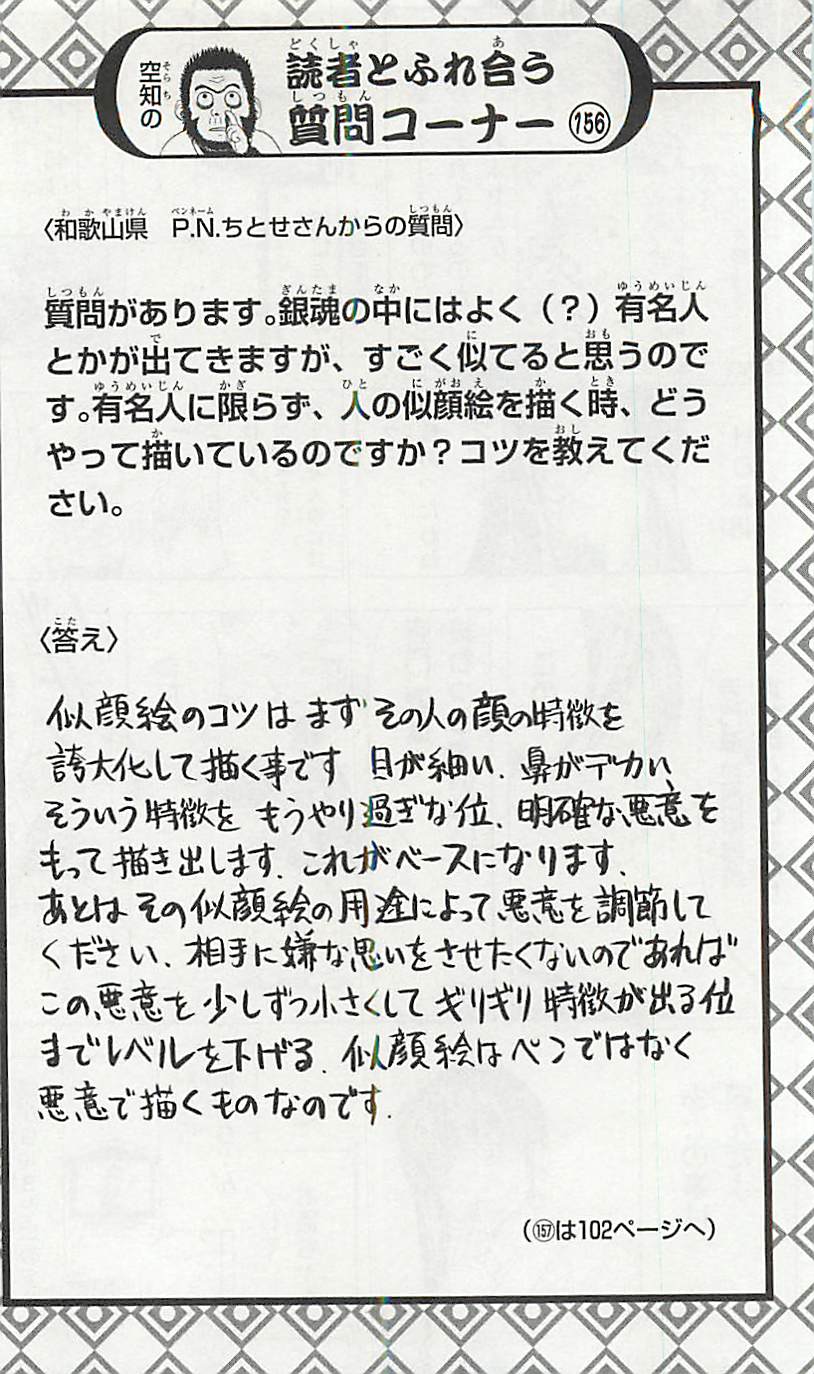 空知の
読者とふれ合う
質問コーナー 156
〈和歌山県 P.N.ちとせさんからの質問〉
質問があります。銀魂の中にはよく（？）有名人
とかが出てきますが、すごく似てると思うので
す。有名人に限らず、人の似顔絵を描く時、どう
やって描いているのですか？コツを教えてくだ
さい。
〈答え〉
似顔絵のコツは まず その人の顔の特徴を
誇大化して描く事です 目が細い、鼻がデカい、
そういう特徴を もうやり過ぎな位、明確な悪意を
もって描き出します、これがベースになります、
あとは その似顔絵の用途によって悪意を調節して
ください、相手に嫌な思いをさせたくないのであれば
この悪意を 少しずつ小さくして ギリギリ特徴が出る位
までレベルを下げる、似顔絵は ペンではなく
悪意で描くものなのです.
（157は102ページへ）